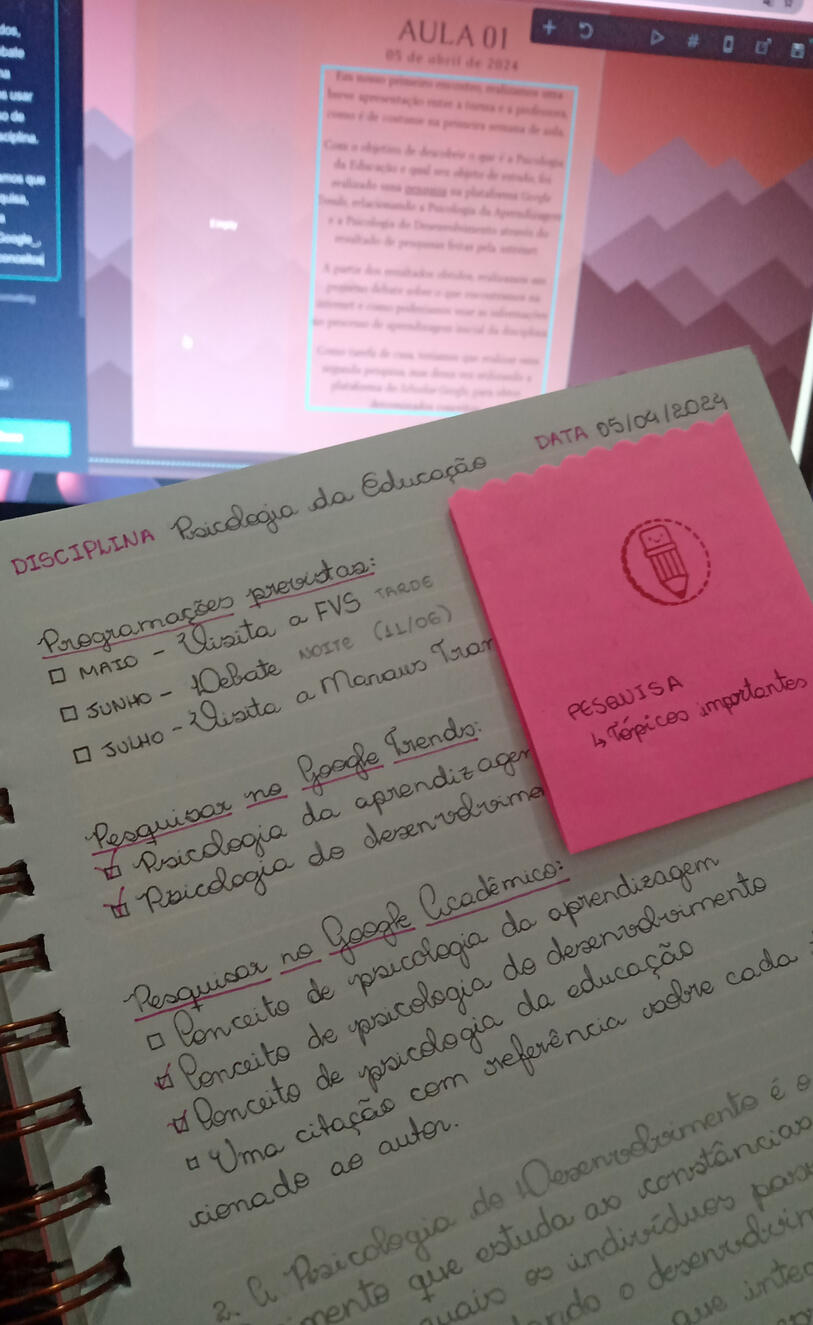 usar
de
que
Google
conceitos
Empty
AULA 01
05 de abril de 2024
Em nosso primeiro encontro, realizamos uma
breve apresentação entre a turma e a professora,
como é de costume na primeira semana de aula.
Com o objetivo de descobrir o que é a Psicologia
da Educação e qual seu objeto de estudo, foi
realizado uma pesquisa na plataforma Google
Trends, relacionando a Psicologia da Aprendizagem
e a Psicologia do Desenvolvimento através do
resultado de pesquisas feitas pela internet.
A partir dos resultados obtidos, realizamos um
pequeno debate sobre o que encontramos na
internet e como poderíamos usar as informações
no processo de aprendizagem inicial da disciplina.
Como tarefa de casa, teríamos que realizar uma
segunda pesquisa, mas dessa vez utilizando a
plataforma do Scholar Google, para obter
DISCIPLINA Psicologia da Educação DATA 05/04/2024
Programações previstas:
MAIO - Visita a FVS TARDE
JUNHO - Debate NOITE (11/06)
JULHO - Visita a Manaus
Pesquisar no Google Trends:
Psicologia da aprendizagem
Psicologia do desenvolvime
PESQUISA
↳ Tópicos importantes
Pesquisar no Google Acadêmico:
Conceito de psicologia da aprendizagem
Conceito de psicologia do desenvolvimento
Conceito de psicologia da educação
Uma citação com referência sobre cada
cionado ao autor.
2. A Psicologia do Desenvolvimento é o
mento que estuda as constâncias
quais os indivíduos pass
ndo o desenvolvim
que integ